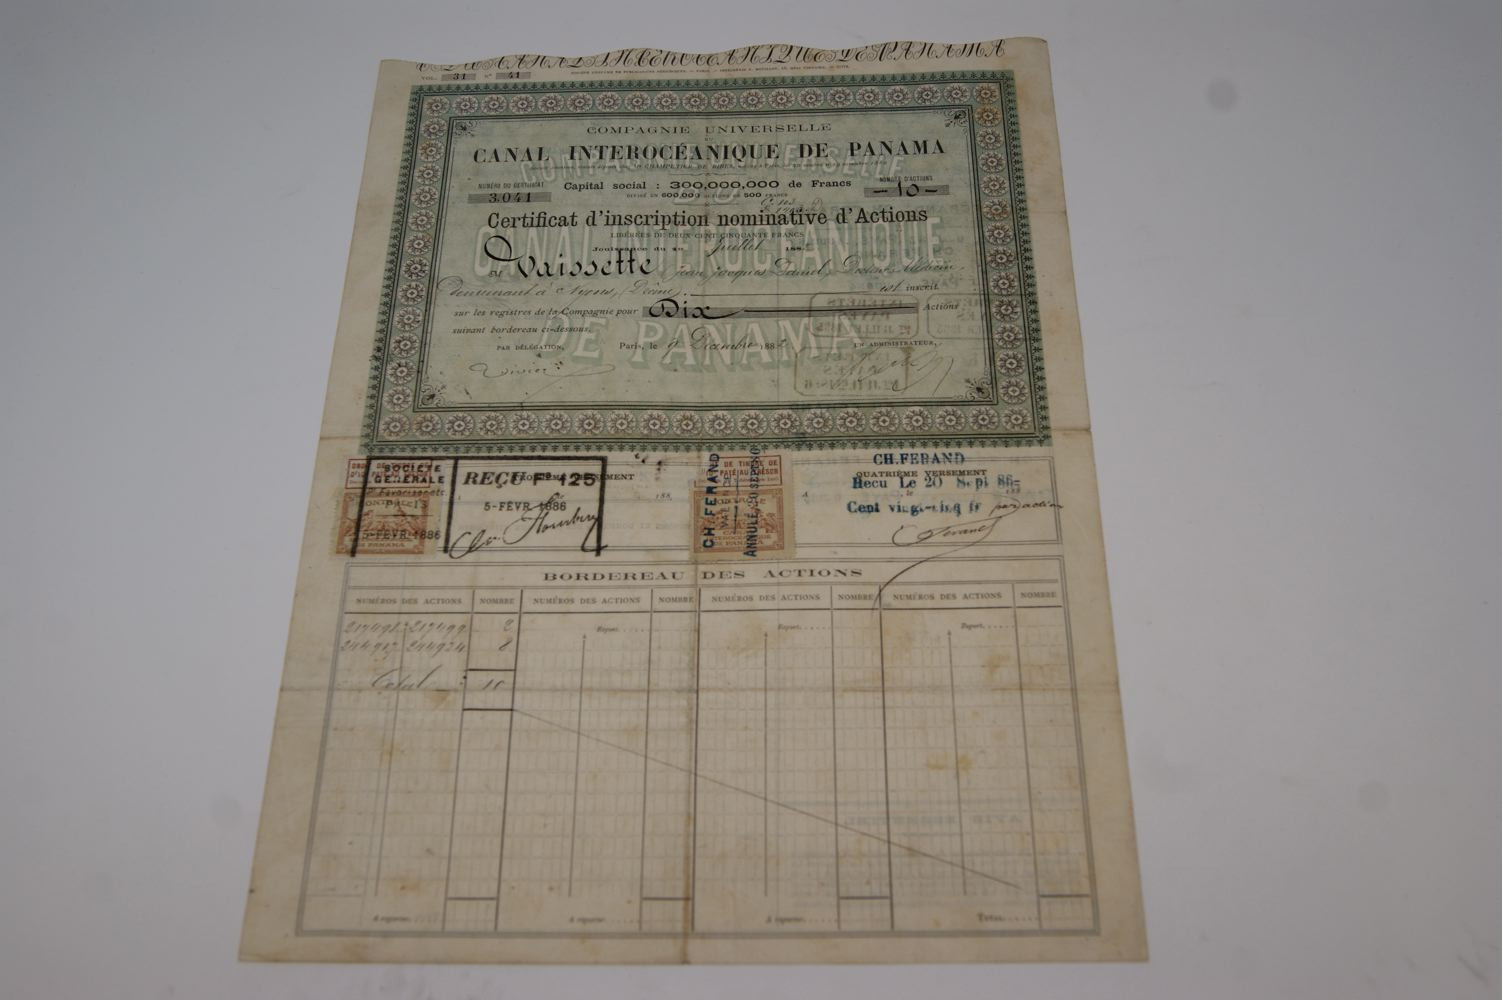 CANAL INTEROCÉANIQUE DE PANAMA
VOL. 31 N° 41
COMPAGNIE UNIVERSELLE
CANAL INTEROCÉANIQUE DE PANAMA
NUMÉRO DU CERTIFICAT
3.041
Capital social : 300,000,000 de Francs
DIVISÉ EN 600,000 ACTIONS DE 500 FRANCS
NOMBRE D'ACTIONS
10
Certificat d'inscription nominative d'Actions
LIBÉRÉES DE DEUX CENT CINQUANTE FRANCS
Jouissance du Juillet 188
M Vaissette Jean Jacques Daniel, Docteur Médecin,
demeurant à Nyons, (Drôme) est inscrit
sur les registres de la Compagnie pour Dix Actions
suivant bordereau ci-dessous.
PAR DÉLÉGATION,
Paris, le 9 Décembre 188
UN ADMINISTRATEUR,
COMPAGNIE UNIVERSELLE
CANAL INTEROCÉANIQUE
DE PANAMA
SOCIÉTÉ
GÉNÉRALE
PARIS
5-FÉVR 1886
REÇU F 125
5-FÉVR 1886
DE TIMBRE
PAYÉ AU TRÉSOR
CH. FERAND
VALENCE
ANNULÉ 20 SEPT 86
CH. FERAND
QUATRIÈME VERSEMENT
Recu Le 20 Sept 86
Cent vingt-cinq fr par action
BORDEREAU DES ACTIONS
NUMÉROS DES ACTIONS NOMBRE NUMÉROS DES ACTIONS NOMBRE NUMÉROS DES ACTIONS NOMBRE NUMÉROS DES ACTIONS NOMBRE
217498 217499 2 Report Report Report
244917 244924 8
Total 10
A reporter A reporter A reporter Total